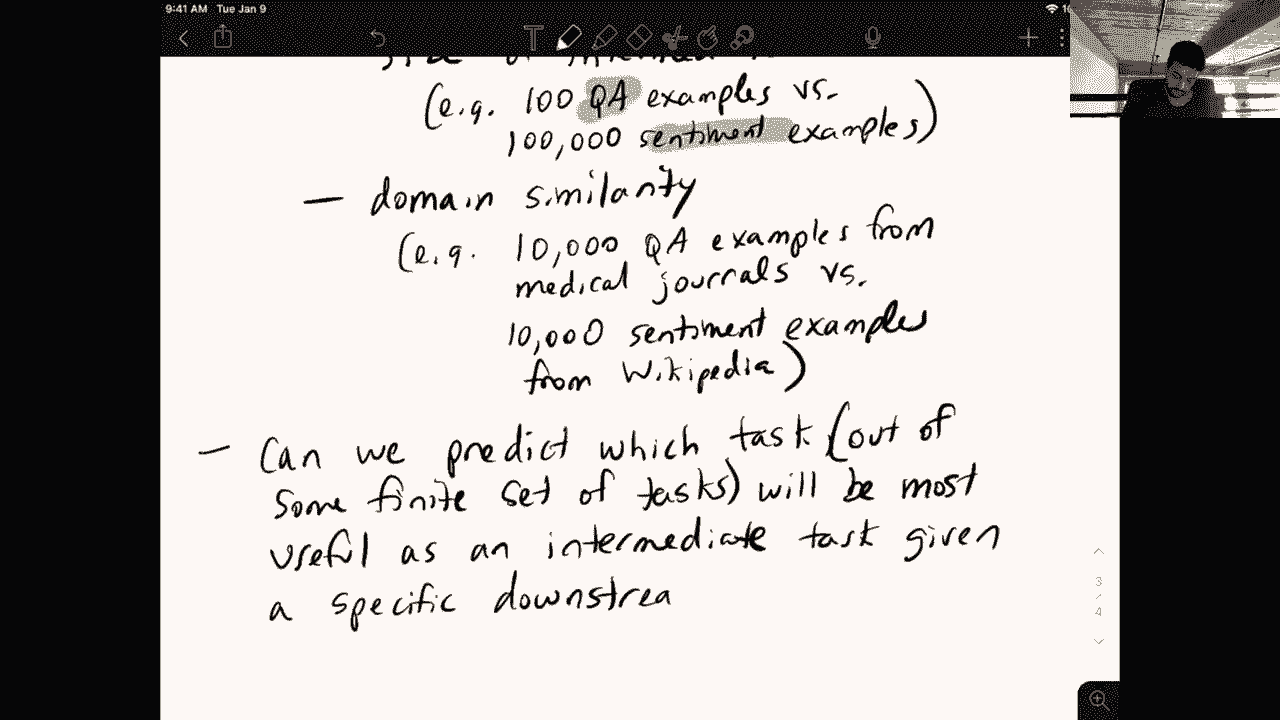 9:41 AM Tue Jan 9
(e.g. 100 QA examples vs.
100,000 sentiment examples)
— domain similarity
(e.g. 10,000 QA examples from
medical journals vs.
10,000 sentiment examples
from Wikipedia)
— Can we predict which task (out of
some finite set of tasks) will be most
useful as an intermediate task given
a specific downstrea
3
/
4